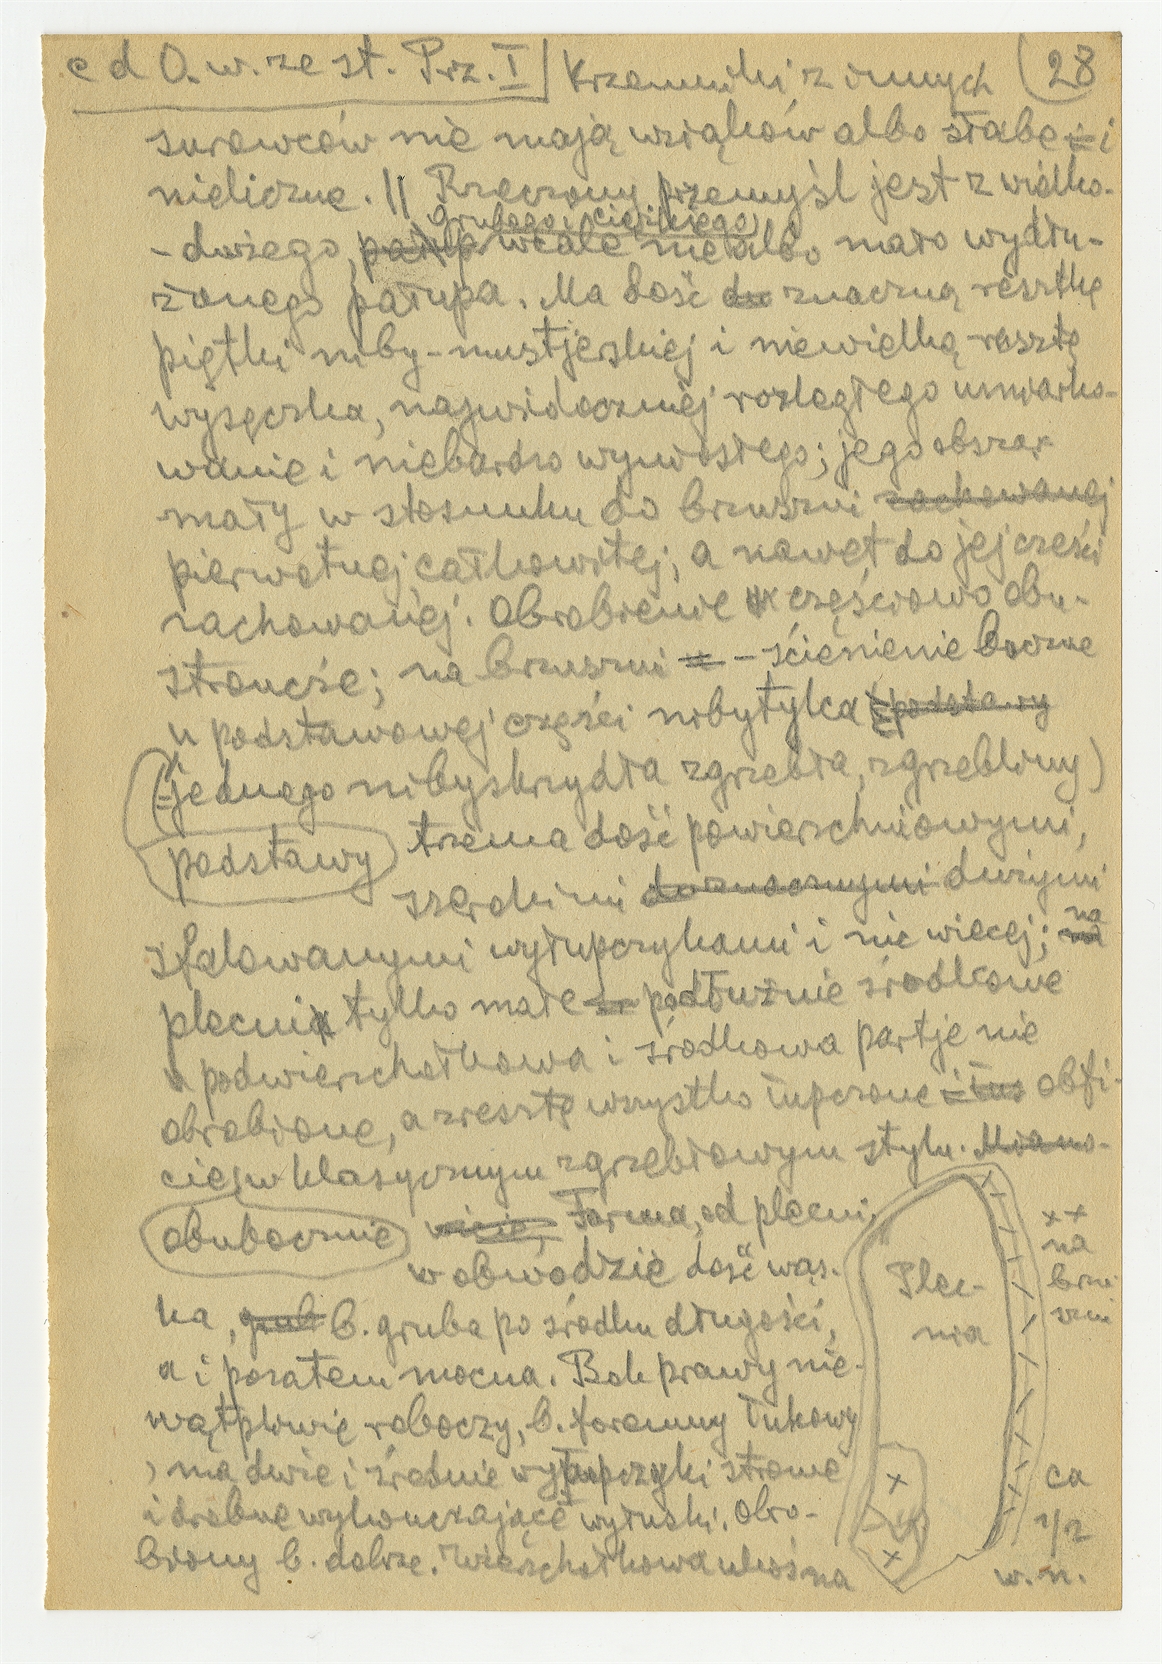 c d O. w. ze st. Prz. I | Krzemniki z innych (28
surowców nie mają wziąków albo słabe i
nieliczne. || Rzeczony przemyśl jest z widko-
grubego i ciężkiego
-dużego, wcale nie albo mało wydłu-
żonego patupa. Ma dość znaczną resztkę
piętki niby-mustjerskiej i niewielką resztę
wysęczka, najwidoczniej rozległego umiarko-
wanie i niebardzo wyniosłego; jego obszar
mały w stosunku do brzuszni zachowanej
pierwotnej całkowitej, a nawet do jej części
zachowanej. Obrobienie częściowo obu-
strończe; na brzuszni - ścienienie boczne
u podstawowej części nibytylca (podstawy
(jednego nibyskrzydła zgrzebła, zgrzebliny)
podstawy trzema dość powierzchniowymi,
szerokimi do znacznymi dużymi
sfalowanymi wyłupczykami i nic więcej; na
plecni tylko małe podłużnie środkowe
podwierzchołkowa i środkowa partje nie
obrobione, a zresztą wszystko łupczone obfi-
cie, w klasycznym zgrzebłowym stylu. Miano-
obubocznie wicie, Forma, od plecni,
w obwodzie dość wąs-
ka, grub b. gruba po środku długości,
a i pozatem mocna. Bok prawy nie-
wątpliwie roboczy, b. foremny łukowy
, ma dwie i średnie wyłupczyki strome
i drobne wykończające wyłuski. Obro-
biony b. dobrze. Wierzchołkowa ukośna
Plec-
nia
x x
na
brzu
szni
ca
1/2
w. n.